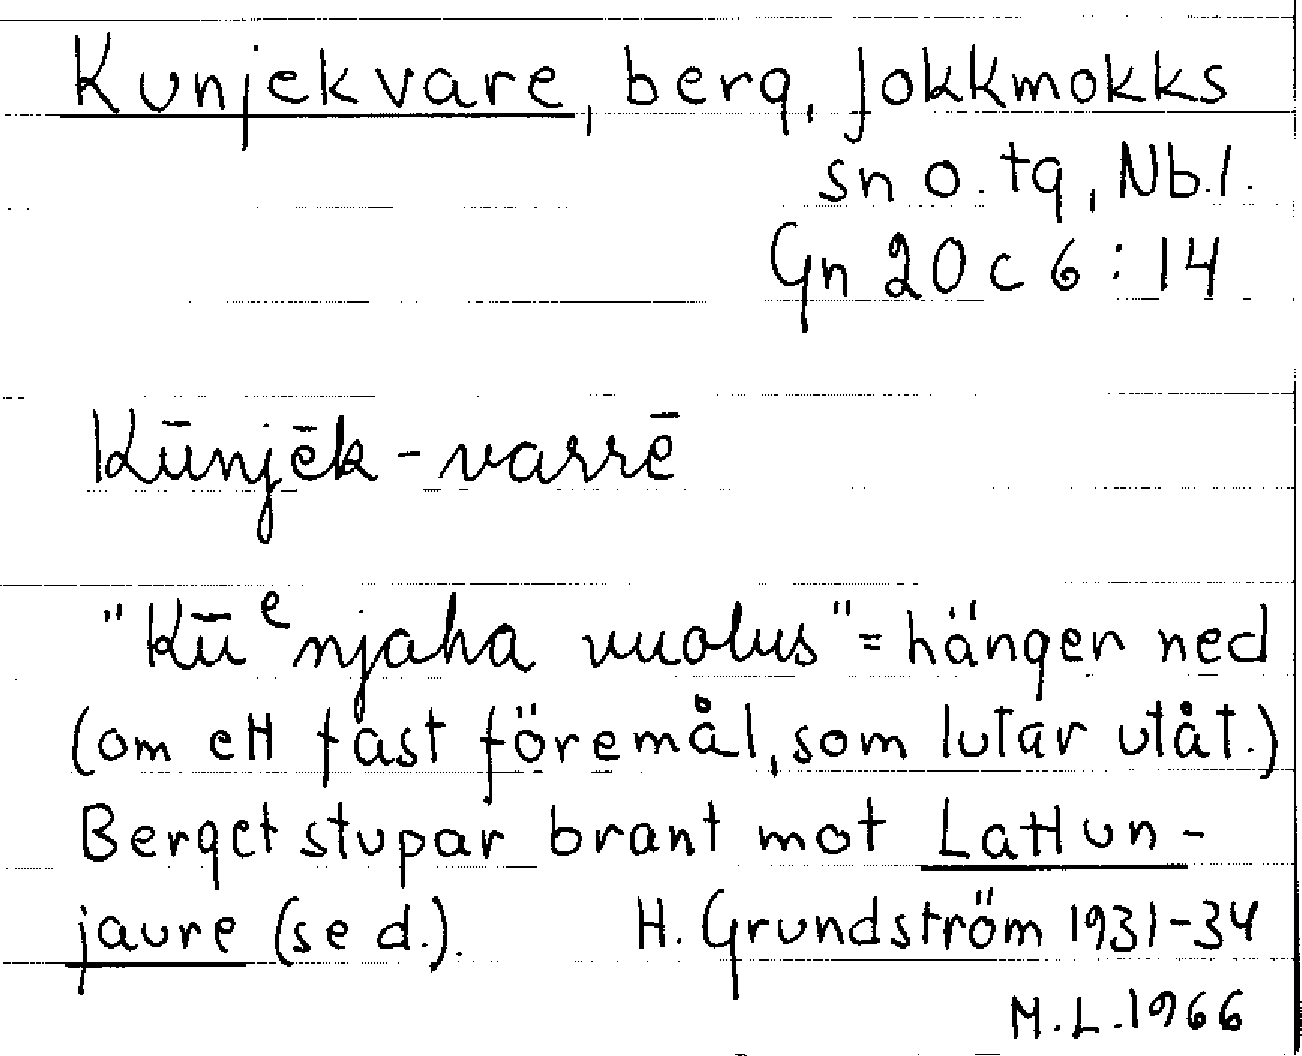 Kunjekvare, berg, Jokkmokks
sn o. tg, Nb.l.
Gn 20 c 6 : 14
Kūnjēk-varrē
"Kūᵉnjaha vuolus" = hänger ned
(om ett fast föremål, som lutar utåt.)
Berget stupar brant mot Lattun-
jaure (se d.). H. Grundström 1931-34
M.L. 1966